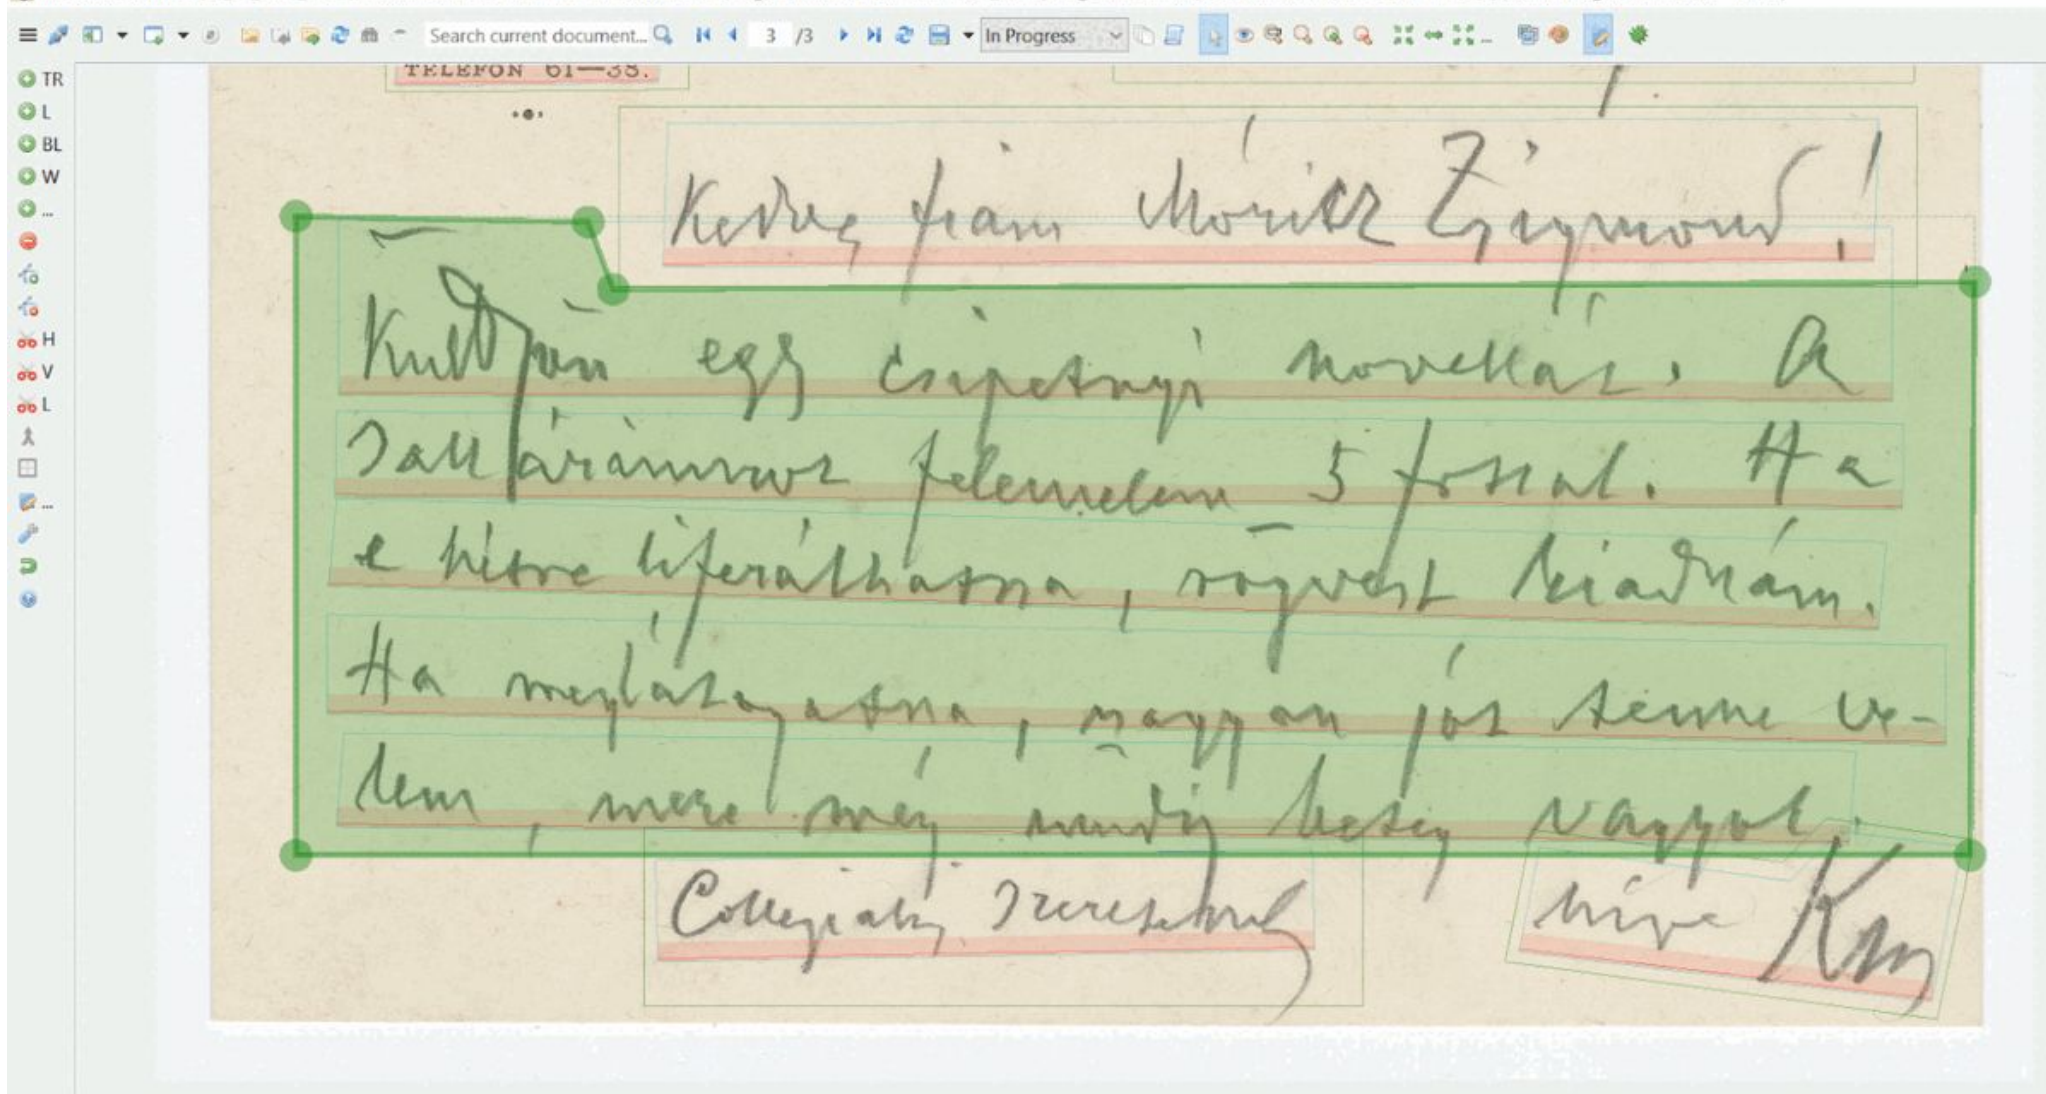 Search current document... 3 /3 In Progress
TR
L
BL
W
...
H
V
L
...
TELEFON 61—38.
Kedves fiam Móricz Zsigmond!
Küldjön egy csipetnyi novellát. A
saláriumot felemelem 5 frttal. Ha
e hétre liferálhatna, rögvest kiadnám.
Ha meglátogatna, nagyon jót tenne ve-
lem, mert még mindig beteg vagyok.
Collegialis szeretettel
híve